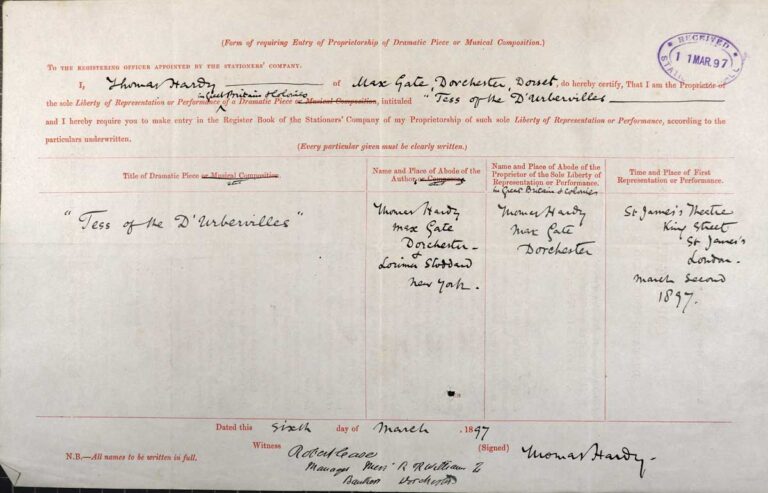 (Form of requiring Entry of Proprietorship of Dramatic Piece or Musical Composition.)
RECEIVED
11 MAR. 97
STATI
TO THE REGISTERING OFFICER APPOINTED BY THE STATIONERS' COMPANY.
I, Thomas Hardy of Max Gate, Dorchester, Dorset, do hereby certify, That I am the Proprietor of
in Great Britain & Colonies
the sole Liberty of Representation or Performance of a Dramatic Piece or Musical Composition, intituled "Tess of the D'Urbervilles
and I hereby require you to make entry in the Register Book of the Stationers' Company of my Proprietorship of such sole Liberty of Representation or Performance, according to the
particulars underwritten.
(Every particular given must be clearly written.)
Title of Dramatic Piece or Musical Composition.
Name and Place of Abode of the
Author or Composer.
Name and Place of Abode of the
Proprietor of the Sole Liberty of
Representation or Performance.
in Great Britain & Colonies
Time and Place of First
Representation or Performance.
"Tess of the D'Urbervilles"
Thomas Hardy
Max Gate
Dorchester -
&
Lorimer Stoddard
New York.
Thomas Hardy
Max Gate
Dorchester
St James's Theatre
King Street
St James's
London.
March Second
1897.
Dated this sixth day of March, 1897
Witness
(Signed) Thomas Hardy.
Manager
Bankers Dorchester
N.B.—All names to be written in full.